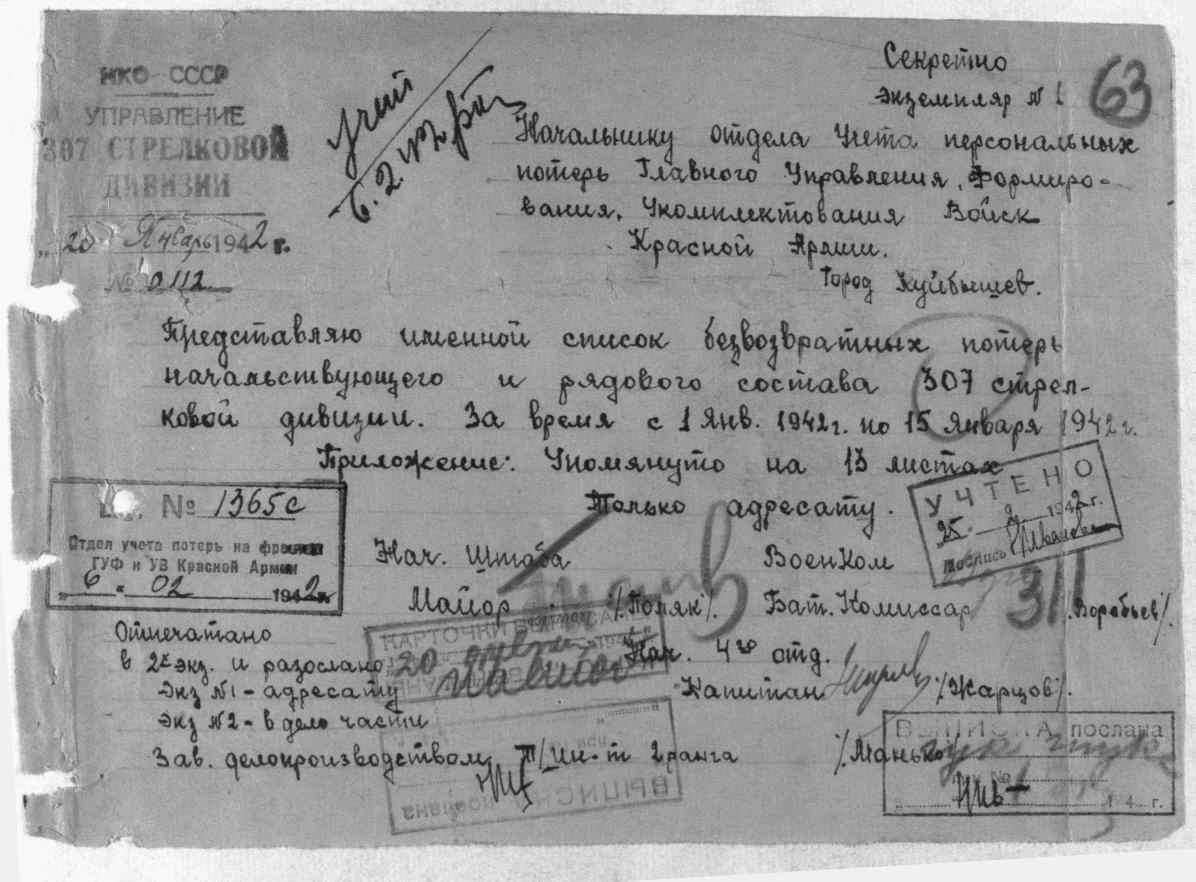 НКО СССР
УПРАВЛЕНИЕ
307 СТРЕЛКОВОЙ
ДИВИЗИИ
„20 Январь 1942 г.
№ 0112
Секретно
экземпляр №1
63
Начальнику отдела Учета персональных
потерь Главного Управления, Формиро-
вания, Укомплектования Войск
Красной Армии.
Город Куйбышев.
Представляю именной список безвозвратных потерь
начальствующего и рядового состава 307 стрел-
ковой дивизии. За время с 1 Янв. 1942г. по 15 Января 1942г.
Приложение: Упомянуто на 13 листах
Только адресату.
УЧТЕНО
25. 2 1942г.
Подпись
№ 1365с
Отдел учета потерь на фронте
ГУФ и УВ Красной Армии
„6" 02 1942г.
Нач. Штаба Военком
Майор /Поляк/. Бат. Комиссар /Воробьев/.
31
Нач. 4го отд.
Капитан /Жарцов/.
Отпечатано
в 2х экз. и разослано
Экз №1 - адресату
Экз №2 - в дело части
Зав. делопроизводством Т/Ин-т 2 ранга /Манько
КАРТОЧКИ
20
ВЫПИСКА послана
№
194 г.
ВЫПИСКА послана